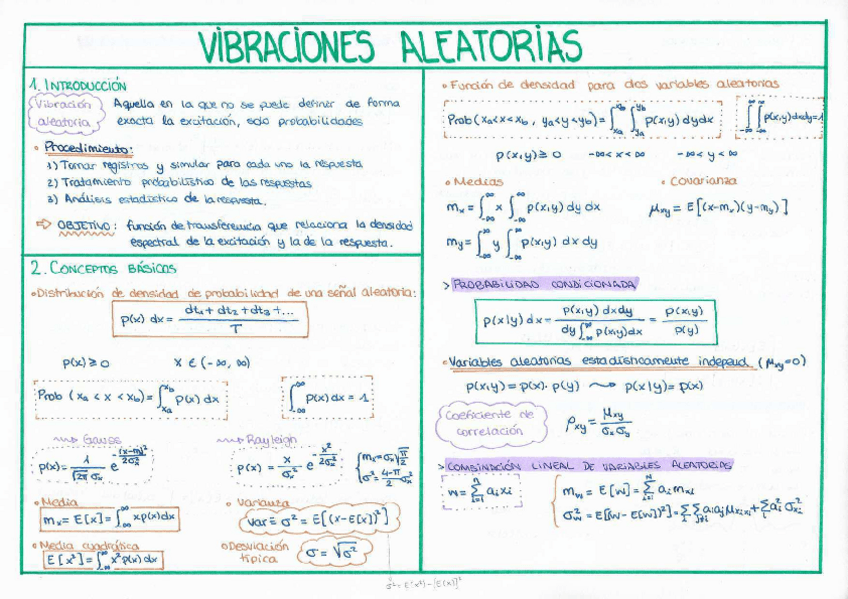 VIBRACIONES ALEATORIAS
1. INTRODUCCIÓN
Vibración aleatoria
Aquella en la que no se puede definir de forma
exacta la excitación, solo probabilidades
• Procedimiento:
1) Tomar registros y simular para cada uno la respuesta
2) Tratamiento probabilístico de las respuestas
3) Análisis estadístico de la respuesta.
⇨ OBJETIVO: función de transferencia que relaciona la densidad
espectral de la excitación y la de la respuesta.
2. CONCEPTOS BÁSICOS
• Distribución de densidad de probabilidad de una señal aleatoria:
p(x) dx = (dt₁ + dt₂ + dt₃ + ...) / T
p(x) ≥ 0 x ∈ (-∞, ∞)
Prob (xa < x < xb) = ∫_{xa}^{xb} p(x) dx
∫_{-∞}^{∞} p(x) dx = 1
Gauss
p(x) = 1/(√2π σx) e^{-(x-m)²/2σx²}
Rayleigh
p(x) = x/σx² e^{-x²/2σx²}
{ mx = σx √(π/2)
σ² = (4-π)/2 σx²
• Media
mx = E[x] = ∫_{-∞}^{∞} x p(x) dx
• Varianza
var = σ² = E[(x-E(x))²]
• Media cuadrática
E[x²] = ∫_{-∞}^{∞} x² p(x) dx
• Desviación típica
σ = √σ²
σ² = E(x²) - [E(x)]²
• Función de densidad para dos variables aleatorias
Prob (xa < x < xb, ya < y < yb) = ∫_{xa}^{xb} ∫_{ya}^{yb} p(x,y) dy dx
∫_{-∞}^{∞} ∫_{-∞}^{∞} p(x,y) dx dy = 1
p(x,y) ≥ 0 -∞ < x < ∞ -∞ < y < ∞
• Medias
mx = ∫_{-∞}^{∞} x ∫_{-∞}^{∞} p(x,y) dy dx
my = ∫_{-∞}^{∞} y ∫_{-∞}^{∞} p(x,y) dx dy
• Covarianza
μxy = E[(x-mx)(y-my)]
> PROBABILIDAD CONDICIONADA
p(x|y) dx = p(x,y) dx dy / (dy ∫_{-∞}^{∞} p(x,y) dx) = p(x,y) / p(y)
• Variables aleatorias estadísticamente independ. (μxy = 0)
p(x,y) = p(x) · p(y) ⇝ p(x|y) = p(x)
Coeficiente de correlación
ρxy = μxy / (σx σy)
> COMBINACIÓN LINEAL DE VARIABLES ALEATORIAS
w = Σ_{i=1}^{n} ai xi
{ mw = E[w] = Σ_{i=1}^{n} ai mxi
σw² = E[(w - E(w))²] = Σ_i Σ_{j≠i} ai aj μxixi + Σ_i ai² σxi²